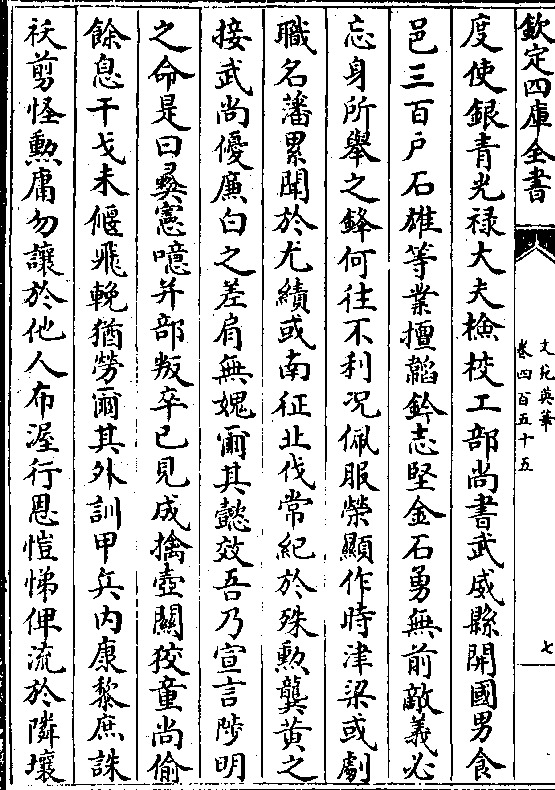 欽定四庫全書
文苑英華
卷四百五十五
七
度使銀青光禄大夫檢校工部尚書武威縣開國男食
邑三百户石雄等業擅韜鈐志堅金石勇無前敵義必
忘身所舉之鋒何往不利况佩服榮顯作時津梁或劇
職名藩累聞於尤績或南征北伐常紀於殊勲龔黄之
接武尚優廉白之差肩無媿爾其懿效吾乃宣言陟明
之命是曰彛憲噫并部叛卒已見成擒壺關狡童尚偷
餘息干戈未偃飛輓猶勞爾其外訓甲兵内康黎庶誅
祅剪怪勲庸勿讓於他人布渥行恩愷悌俾流於隣壤